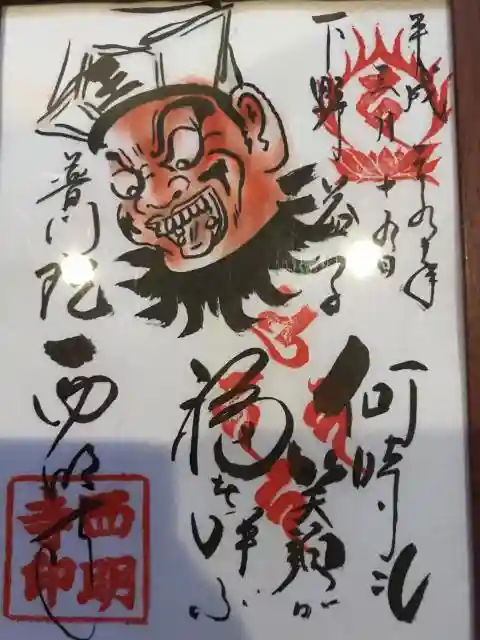 平成二十九年
三月十九日
下野 益子
何時も
笑顔が
福を呼ぶ
王
普門院 西明寺
西明
寺印